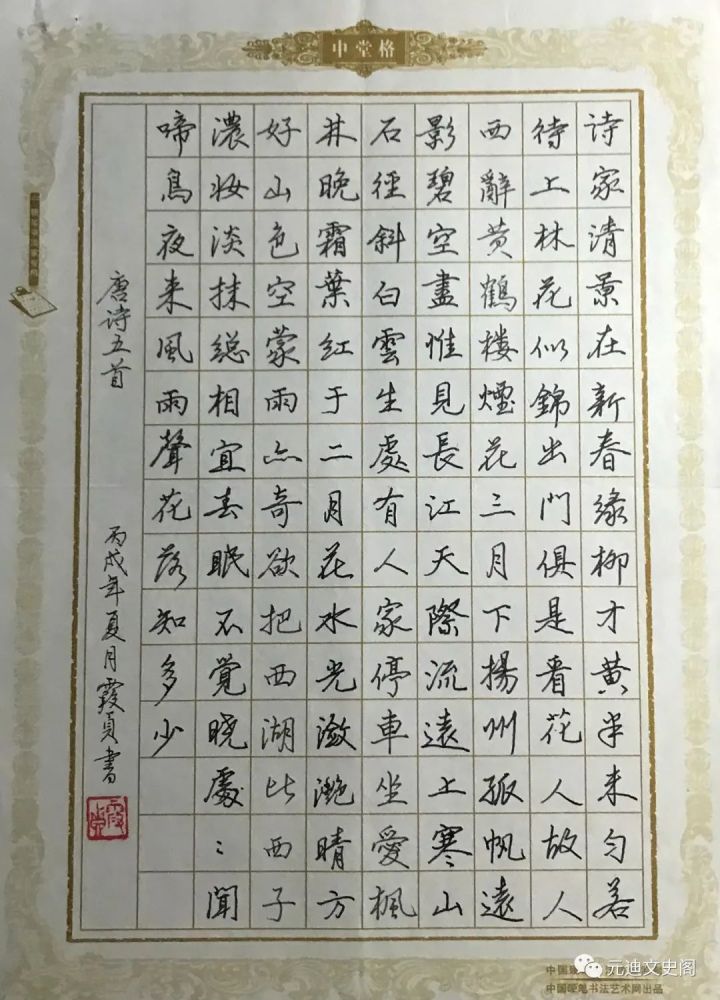 中堂格
诗家清景在新春緣柳才黄半未匀若
待上林花似錦出門俱是看花人故人
西辭黄鶴樓煙花三月下揚州孤帆遠
影碧空盡惟見長江天際流遠上寒山
石徑斜白雲生處有人家停車坐愛楓
林晚霜葉紅于二月花水光潋灔晴方
好山色空蒙雨亦奇欲把西湖比西子
濃妝淡抹總相宜春眠不覺曉處〻聞
啼鳥夜来風雨聲花落知多少
唐诗五首
丙戌年夏月霞書
中国硬笔书法艺术网出品
元迪文史阁